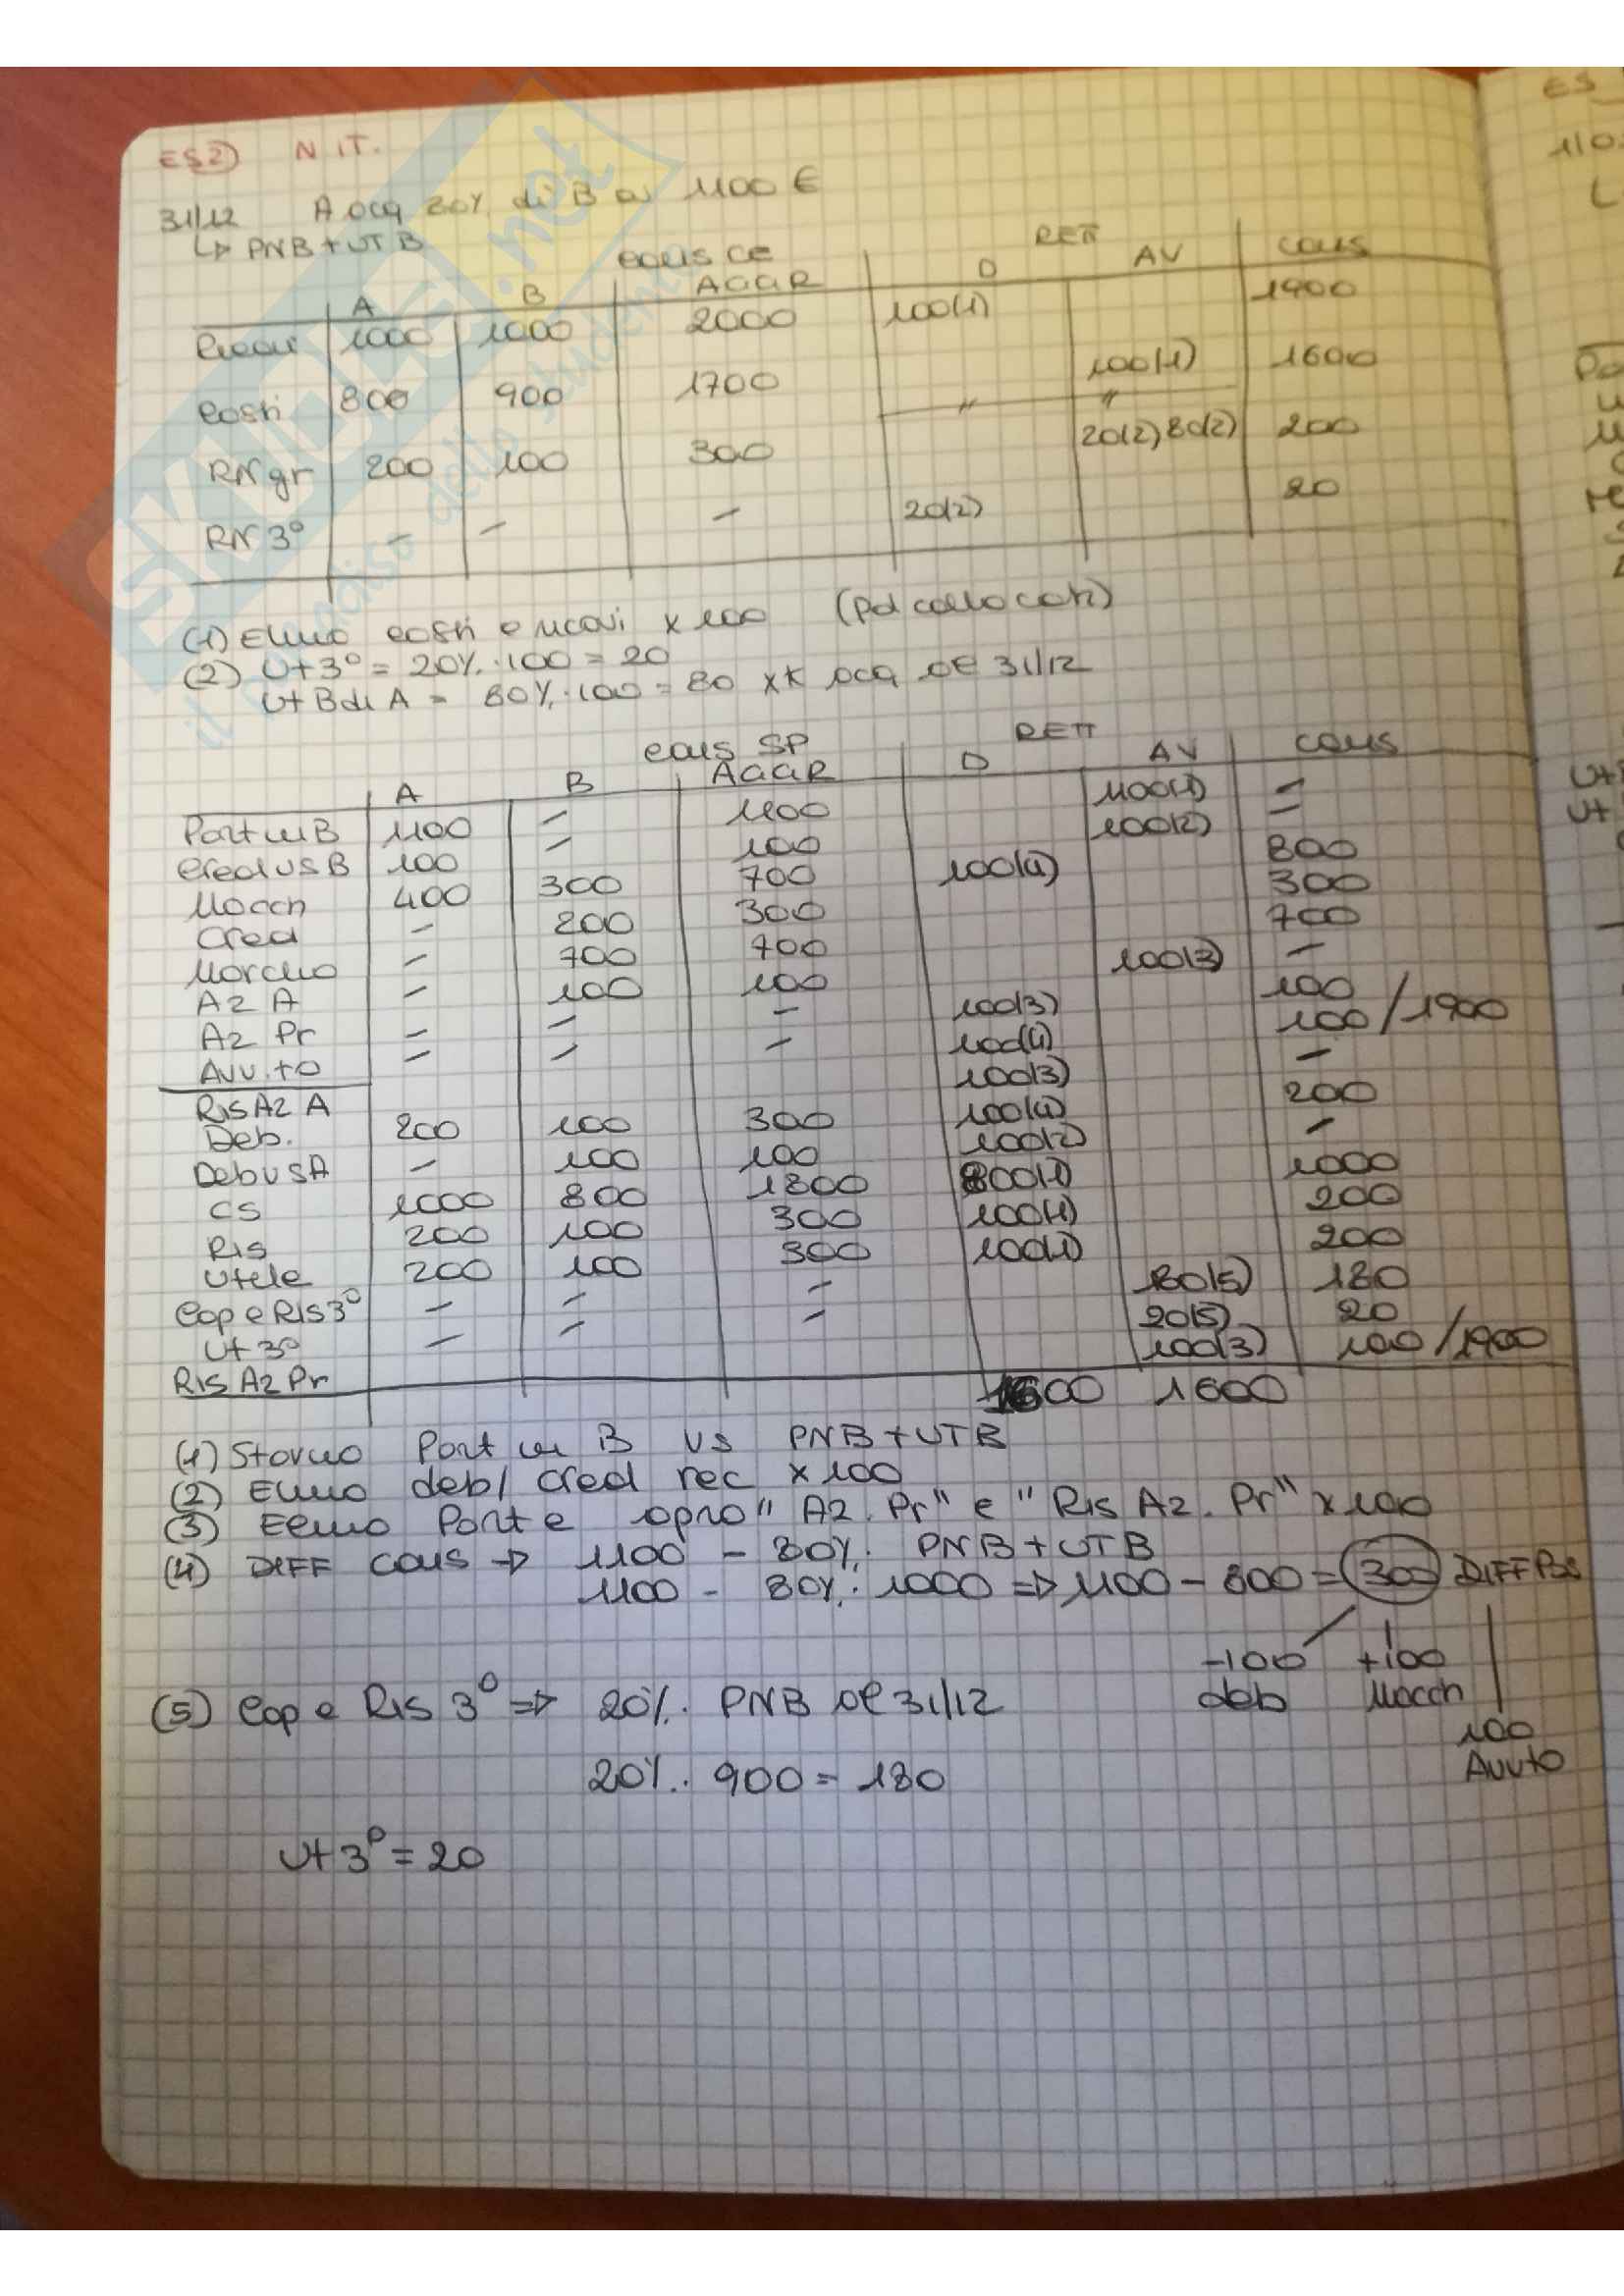 ES2) N IT.
31/12 A acq 80% di B a 1100 €
↳ PNB + UT B
cons CE
RETT
A B AGGR D AV cons
Ricavi 1000 1000 2000 100(1) 1900
costi 800 900 1700 100(1) 1600
RN gr 200 100 300 20(2) 80(2) 200
RN 3° - - - 20(2) 20
(1) Elimino costi e ricavi x 100
(2) Ut 3° = 20% · 100 = 20
Ut B di A = 80% · 100 = 80 xk acq al 31/12
cons SP
RETT
A B AGGR D AV cons
Part in B 1100 - 1100 1100(1) -
Cred vs B 100 - 100 100(2) -
Macch 400 300 700 100(4) 800
Cred - 200 300 300
Marchio - 700 700 700
Az A - 100 100 100(3) -
Az Pr - - - 100(3) 100
Avv.to - - - 100(4) 100/1900
Ris Az A 100(3) -
Deb. 200 100 300 100(4) 200
Deb vs A - 100 100 100(2) -
CS 1000 800 1800 800(1) 1000
Ris 200 100 300 100(1) 200
Utele 200 100 300 100(1) 200
Cap e Ris 3° - - - 180(5) 180
Ut 3° - - - 20(5) 20
Ris Az Pr - 100(3) 100/1900
1600 1600
(1) Storno Part in B vs PNB + UTB
(2) Elimo deb/ cred rec x 100
(3) Elimo Part e apro "Az. Pr" e "Ris Az. Pr" x 100
(4) DIFF cons → 1100 - 80% · PNB + UTB
1100 - 80% · 1000 ⇒ 1100 - 800 = 300 DIFF Pos
-100 +100
deb Macch
100
Avvto
(5) Cap e Ris 3° ⇒ 20% · PNB al 31/12
20% · 900 = 180
Ut 3° = 20